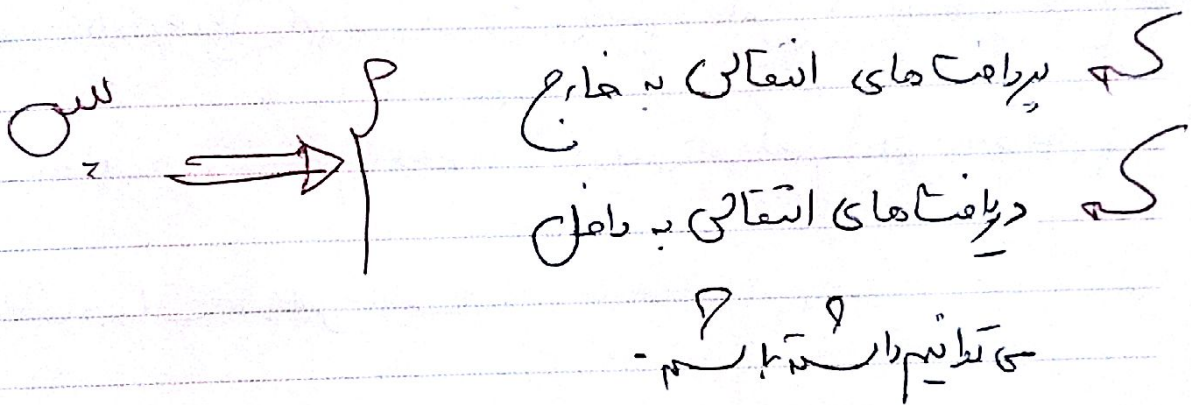 که پرداخت های انتقالی به خارج
که دریافت های انتقالی به داخل
می توانیم داشته باشیم.